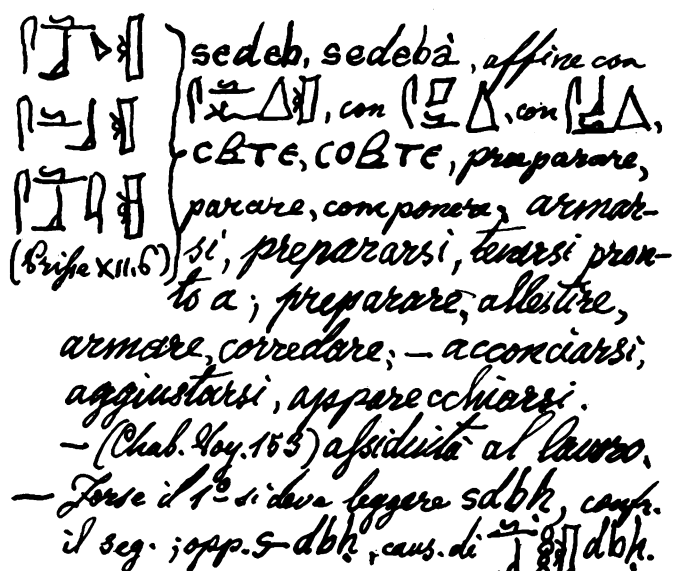 sedeb, sedebà, affine con
, con , con ,
ⲥⲃⲧⲉ, ⲥⲟⲃⲧⲉ, praeparare,
parare, componere, armar-
(Prisse XII.6) si, prepararsi, tenersi pron-
to a; preparare, allestire,
armare, corredare; — acconciarsi,
aggiustarsi, apparecchiarsi.
— (Chab. Voy. 153) assiduità al lavoro.
— Forse il 1º si deve leggere sdbḥ, confr.
il seg.; opp. s-dbḥ, caus. di dbḥ.